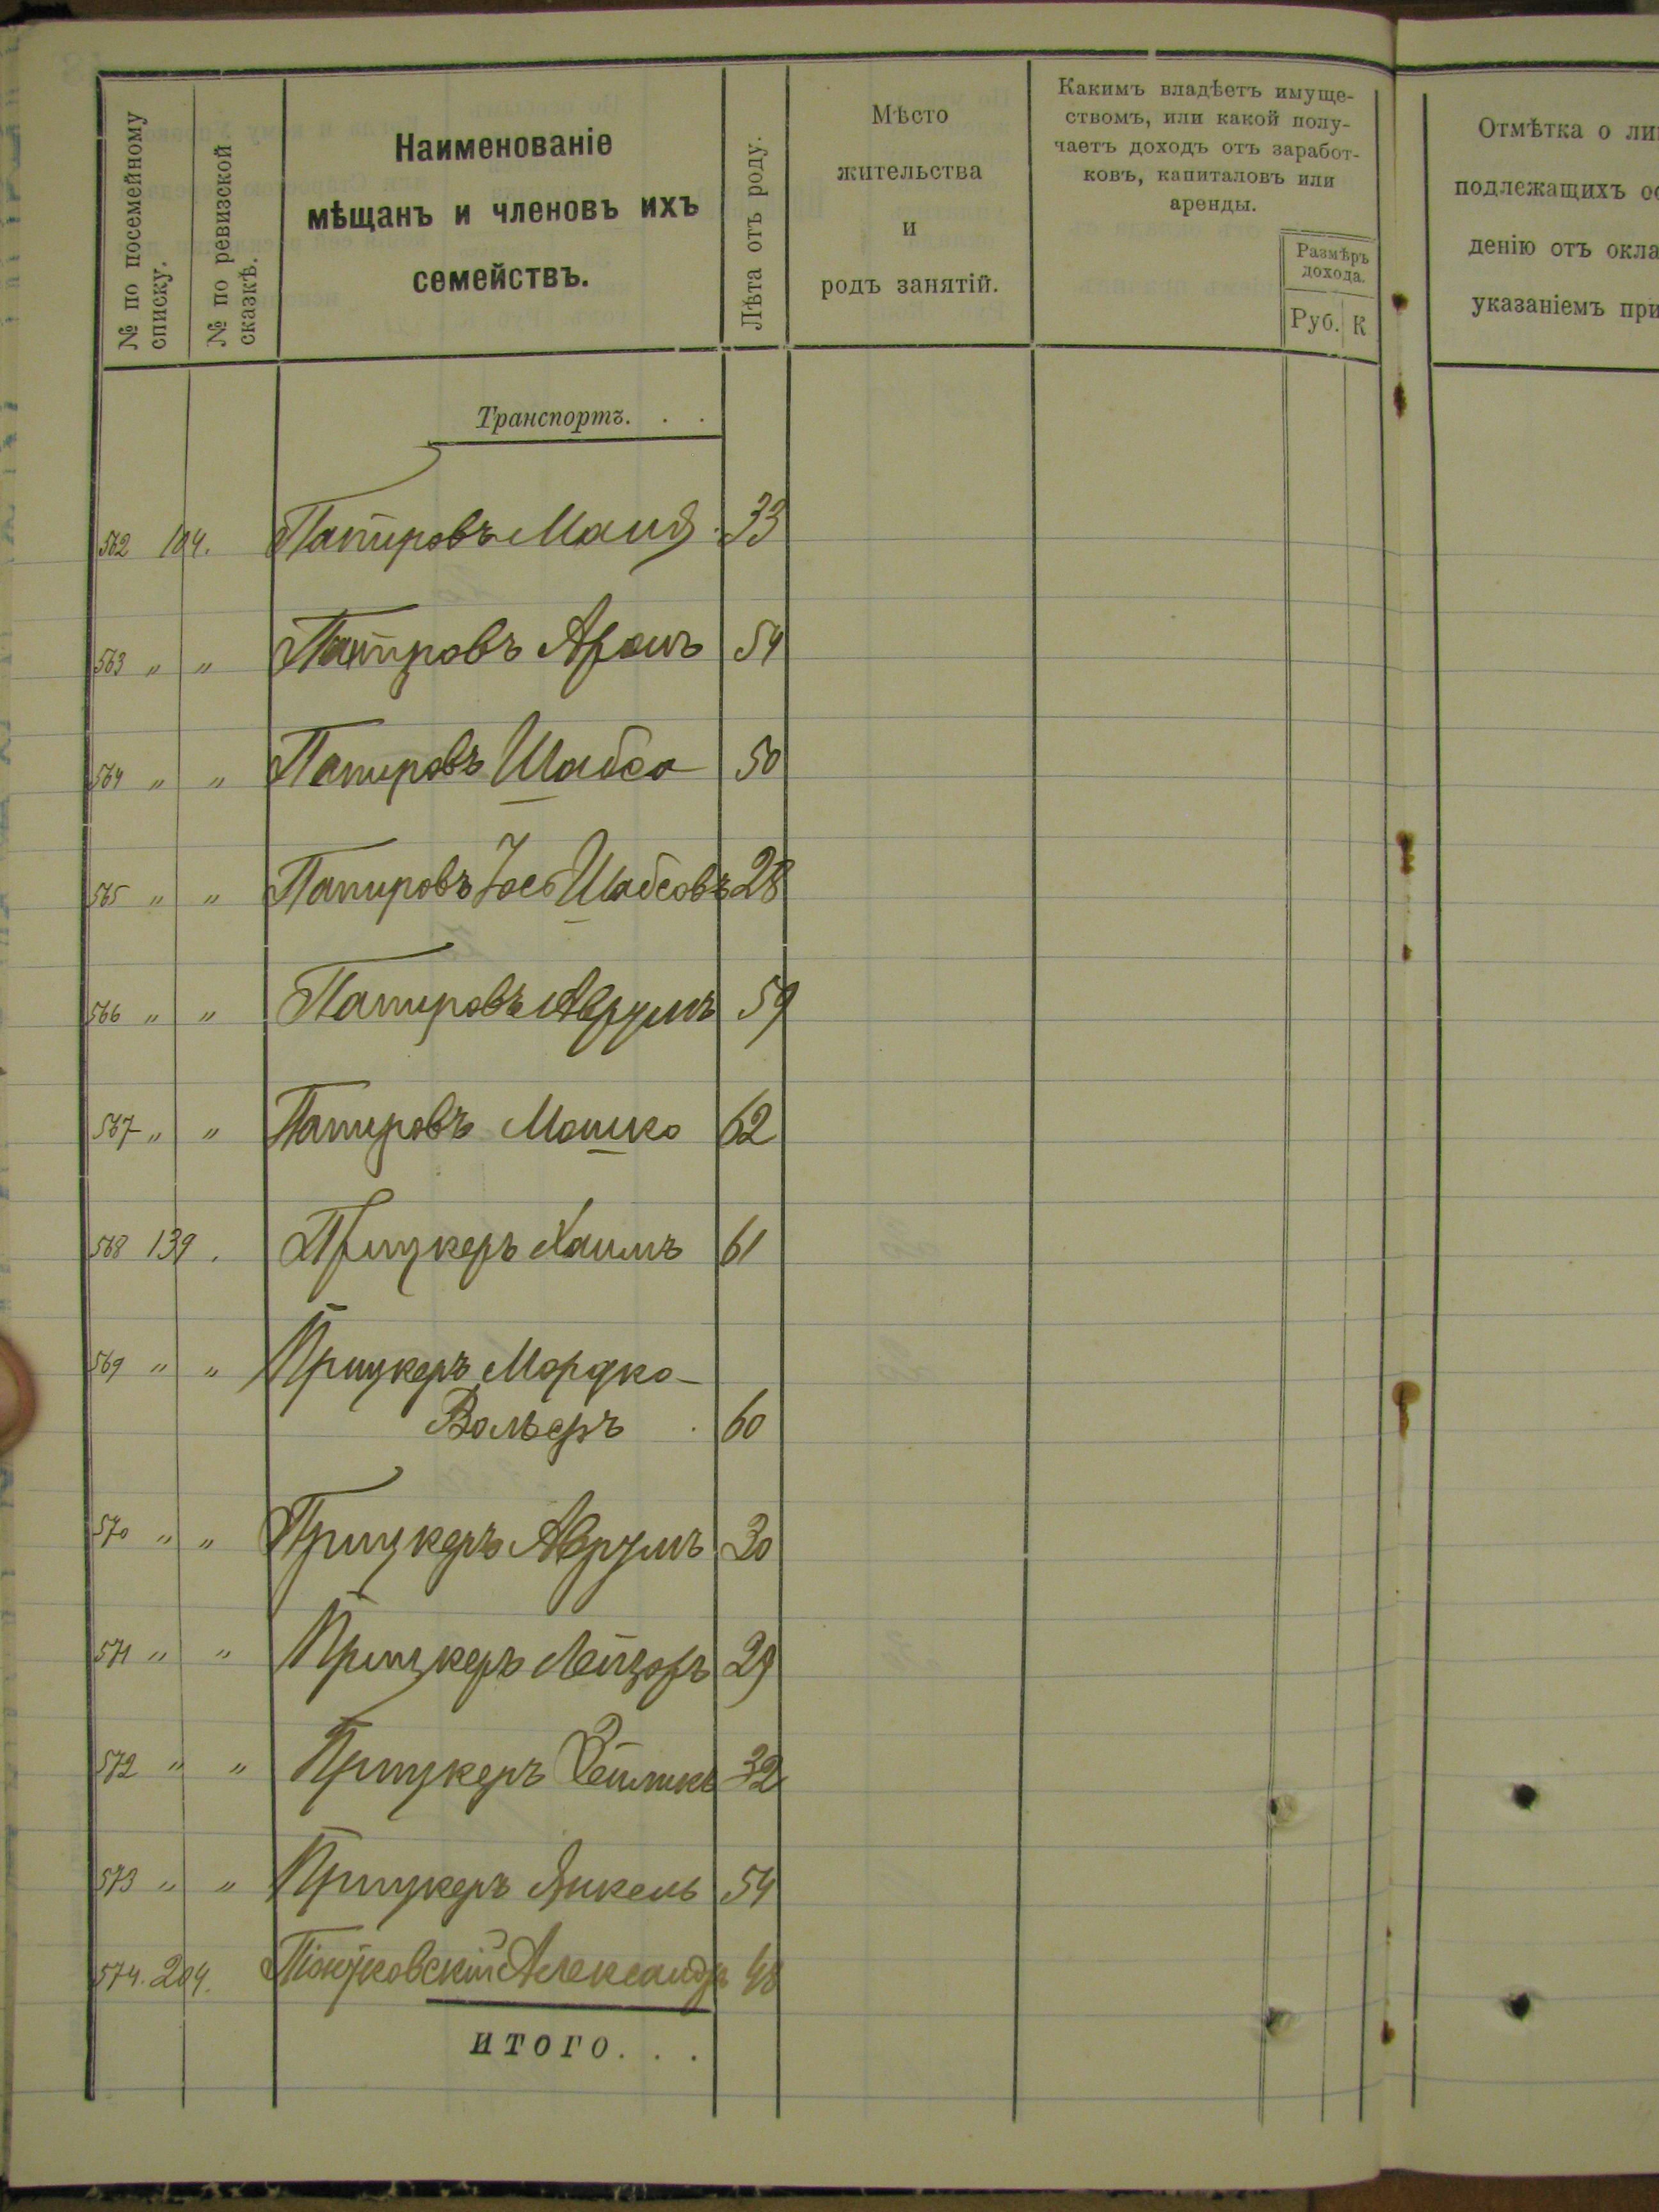 № по посемейному
списку.
№ по ревизской
сказкѣ.
Наименованіе
мѣщанъ и членовъ ихъ
семействъ.
Лѣта отъ роду.
Мѣсто
жительства
и
родъ занятій.
Какимъ владѣетъ имуще-
ствомъ, или какой полу-
чаетъ доходъ отъ заработ-
ковъ, капиталовъ или
аренды.
Размѣръ
дохода.
Руб. К
Отмѣтка о ли
подлежащихъ ос
денію отъ окла
указаніемъ при
Транспортъ. . .
562 104. Папировъ 33
563 " " Папировъ Аронъ 54
564 " " Папировъ Шабса 50
565 " " Папировъ Іось Шабсовъ 28
566 " " Папировъ Аврумъ 59
567 " " Папировъ Мошко 62
568 139. Прицкеръ Хаимъ 61
569 " " Прицкеръ Мордко-
Вольверъ 60
570 " " Прицкеръ Аврумъ 30
571 " " Прицкеръ Лейзоръ 29
572 " " Прицкеръ 32
573 " " Прицкеръ Янкель 54
574. 204. Александръ 48
ИТОГО. . .